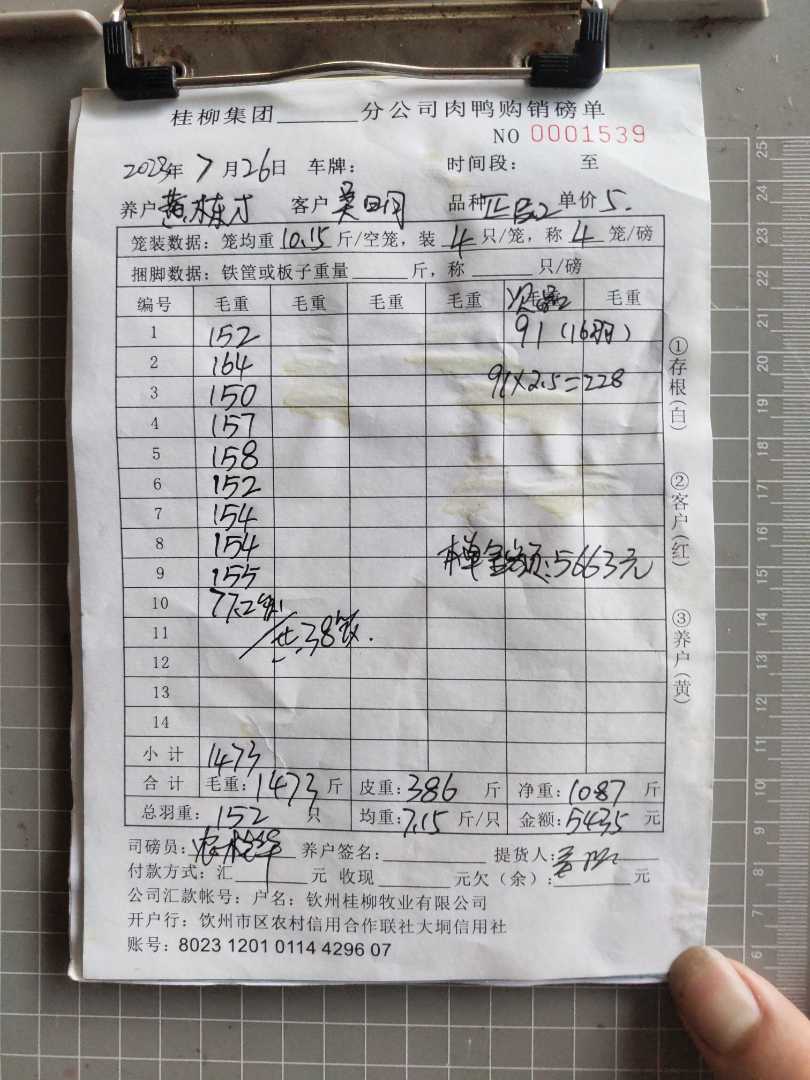 桂柳集团______分公司肉鸭购销磅单
NO 0001539
2023年7月26日 车牌: 时间段: 至
养户黄栋才 客户 品种 单价5.
笼装数据: 笼均重10.15斤/空笼, 装4只/笼, 称4笼/磅
捆脚数据: 铁筐或板子重量______斤, 称______只/磅
编号 毛重 毛重 毛重 毛重 毛重
1 152 91 (16羽)
2 164
3 150 91×2.5=228
4 157
5 158
6 152
7 154
8 154 本单金额:5663元
9 155
10 77.2笼
11 共38笼.
12
13
14
小计 1473
合计 毛重:1473斤 皮重:386斤 净重:1087斤
总羽重:152只 均重:7.15斤/只 金额:5435元
司磅员: 养户签名: 提货人:
付款方式: 汇______元 收现______元欠(余):______元
公司汇款帐号: 户名: 钦州桂柳牧业有限公司
开户行: 钦州市区农村信用合作联社大垌信用社
账号: 8023 1201 0114 4296 07
①存根(白)
②客户(红)
③养户(黄)
25
24
23
22
21
20
19
18
17
16
15
14
13
12
11
10
9
8
7
6